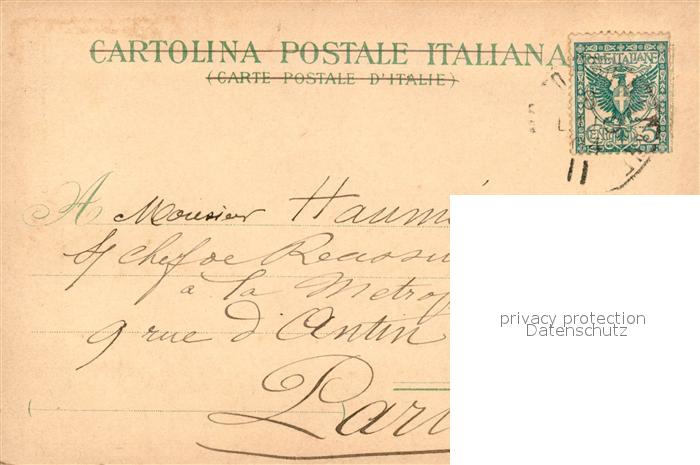 CARTOLINA POSTALE ITALIANA
(CARTE POSTALE D'ITALIE)
POSTE ITALIANE
CENTESIMI 5
11
A Monsieur Haumé
S/ Chef de
à la Metrop
9 rue d'Antin
Par
privacy protection
Datenschutz